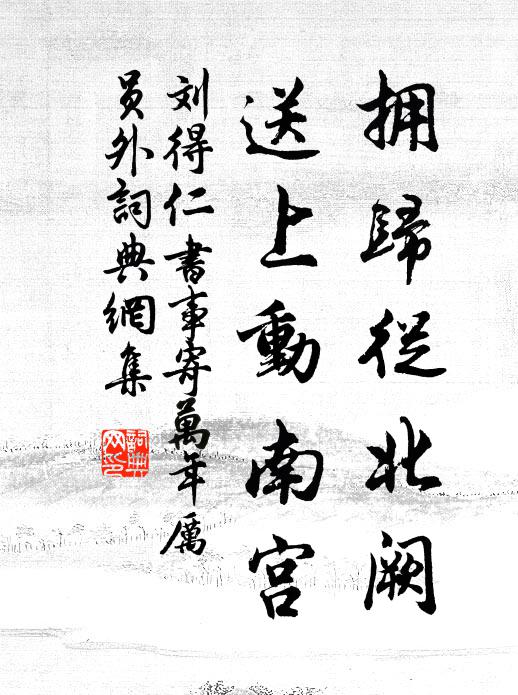 拥歸從北阙
送上動南宫
刘得仁書事寄萬年厲
员外詞典網集
詞典
网印